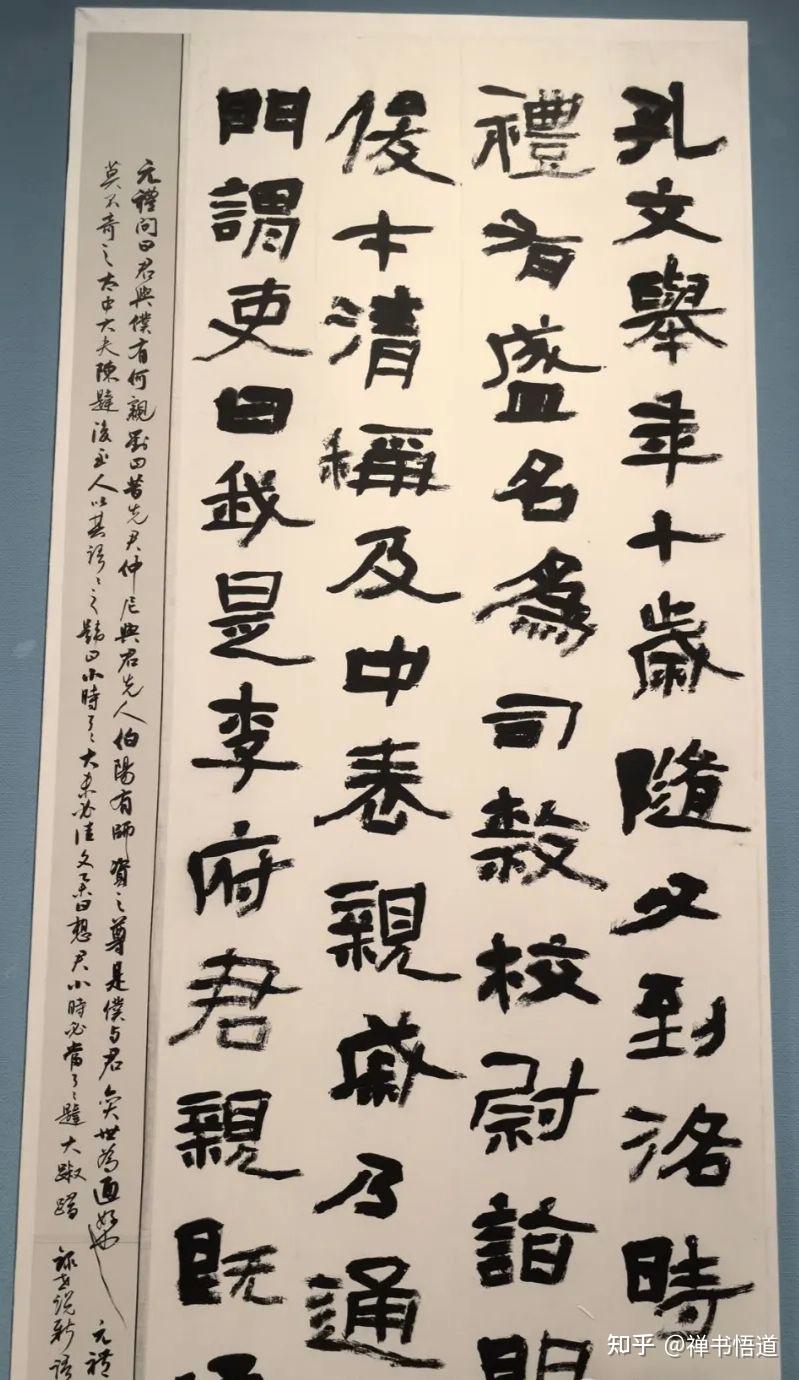 孔文舉年十歲隨父到洛時
禮有盛名爲司隸校尉詣門
俊才清稱及中表親戚乃通
門謂吏曰我是李府君親既通
元禮問曰君與僕有何親對曰昔先君仲尼與君先人伯陽有師資之尊是僕与君奕世為通好也元禮
莫不奇之太中大夫陳韙後至人以其語〻之韙曰小時了〻大未必佳文舉曰想君小時必當了〻韙大踧踖 錄世説新語
知乎 @禅书悟道